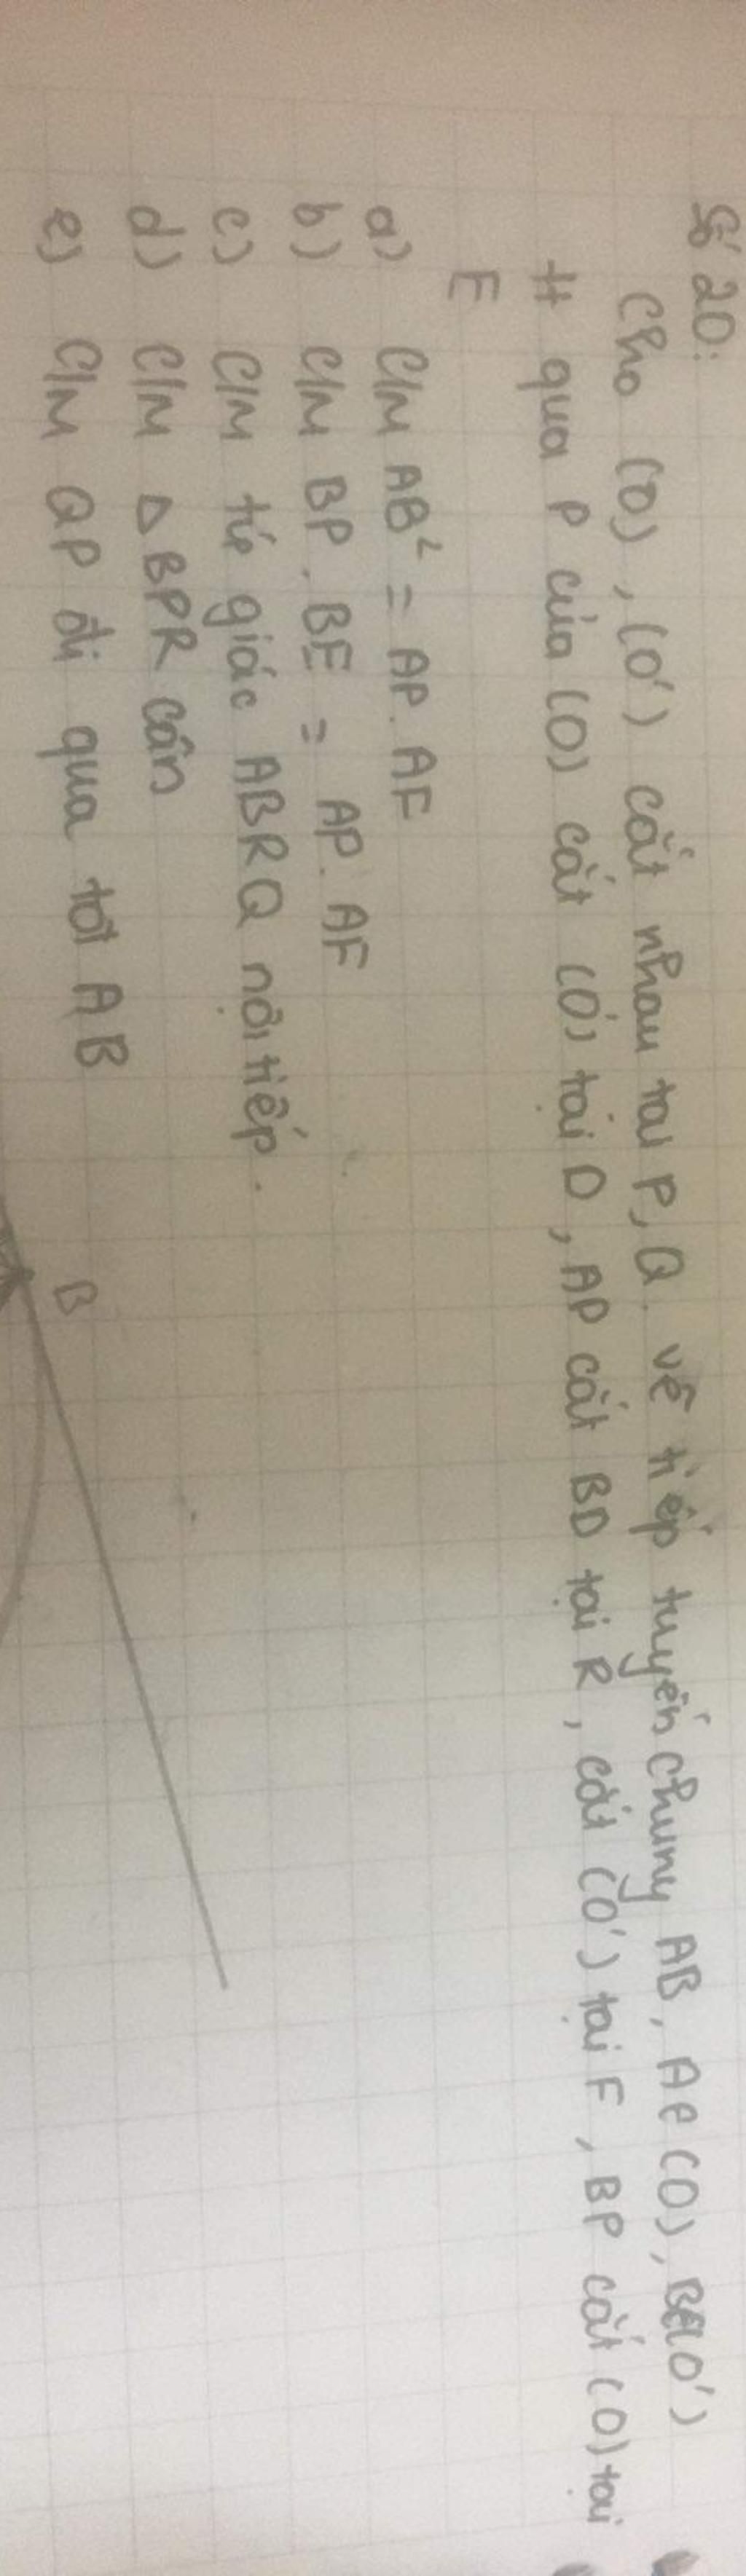 § 20:
Cho (O), (O') cắt nhau tại P, Q. vẽ tiếp tuyến chung AB, A∈(O), B∈(O')
tt qua P của (O) cắt (O') tại D, AP cắt BD tại R, cắt (O') tại F, BP cắt (O) tại
E
a) C/M AB² = AP. AF
b) C/M BP. BE = AP. AF
c) C/M tứ giác ABRQ nội tiếp.
d) C/M Δ BPR cân
e) C/M QP đi qua tđ AB
B